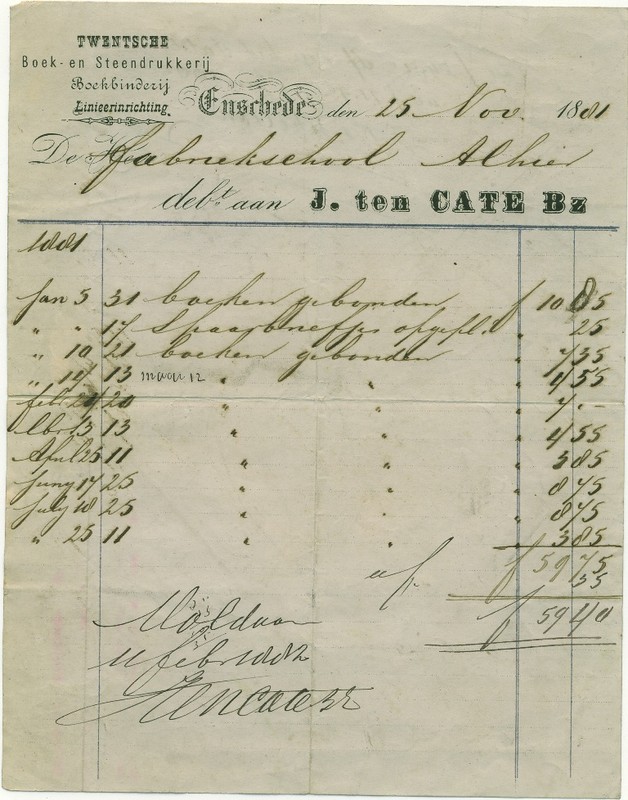 TWENTSCHE
Boek- en Steendrukkerij
Boekbinderij
Linieerinrichting
Enschede den 25 Nov. 1881
De Heer Fabriekschool Alhier
debt. aan J. ten CATE Bz
1881
Jan 5 31 boeken gebonden f 10 85
" " 17 opgepl. " 25
" 10 21 boeken gebonden " 7 35
" 14 13 maar 12 " " " 4 55
febr. 24 20 " " " 7 . -
13 13 " " " 4 55
April 25 11 " " " 3 85
Juny 14 25 " " " 8 75
July 18 25 " " " 8 75
" 25 11 " " " 3 85
f 59 75
af. 35
f 59 40
Voldaan
11 febr 1882
J ten Cate Bz